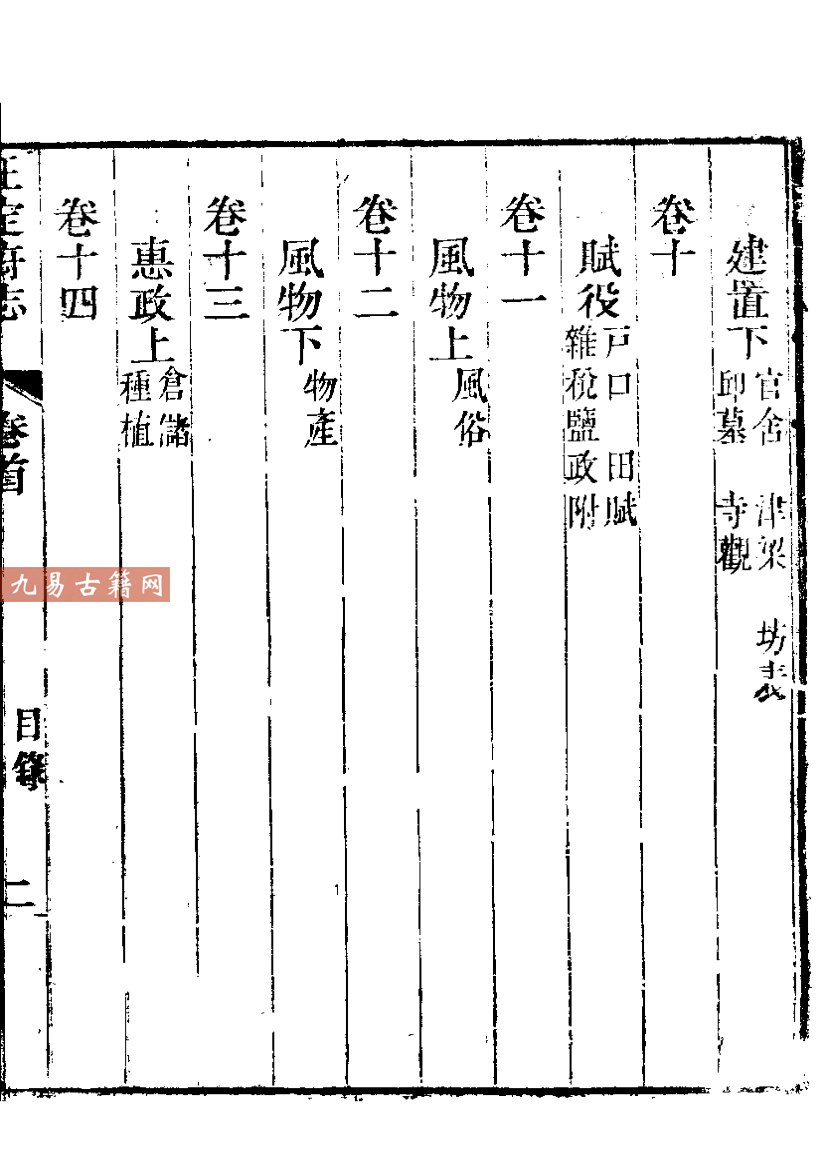 建置下 官舍 津梁 坊表
邱墓 寺觀
卷十
賦役 戸口 田賦
雜稅鹽政附
卷十一
風物上 風俗
卷十二
風物下 物產
卷十三
惠政上 倉儲
種植
卷十四
正定府志 卷首 目錄 二
九易古籍网